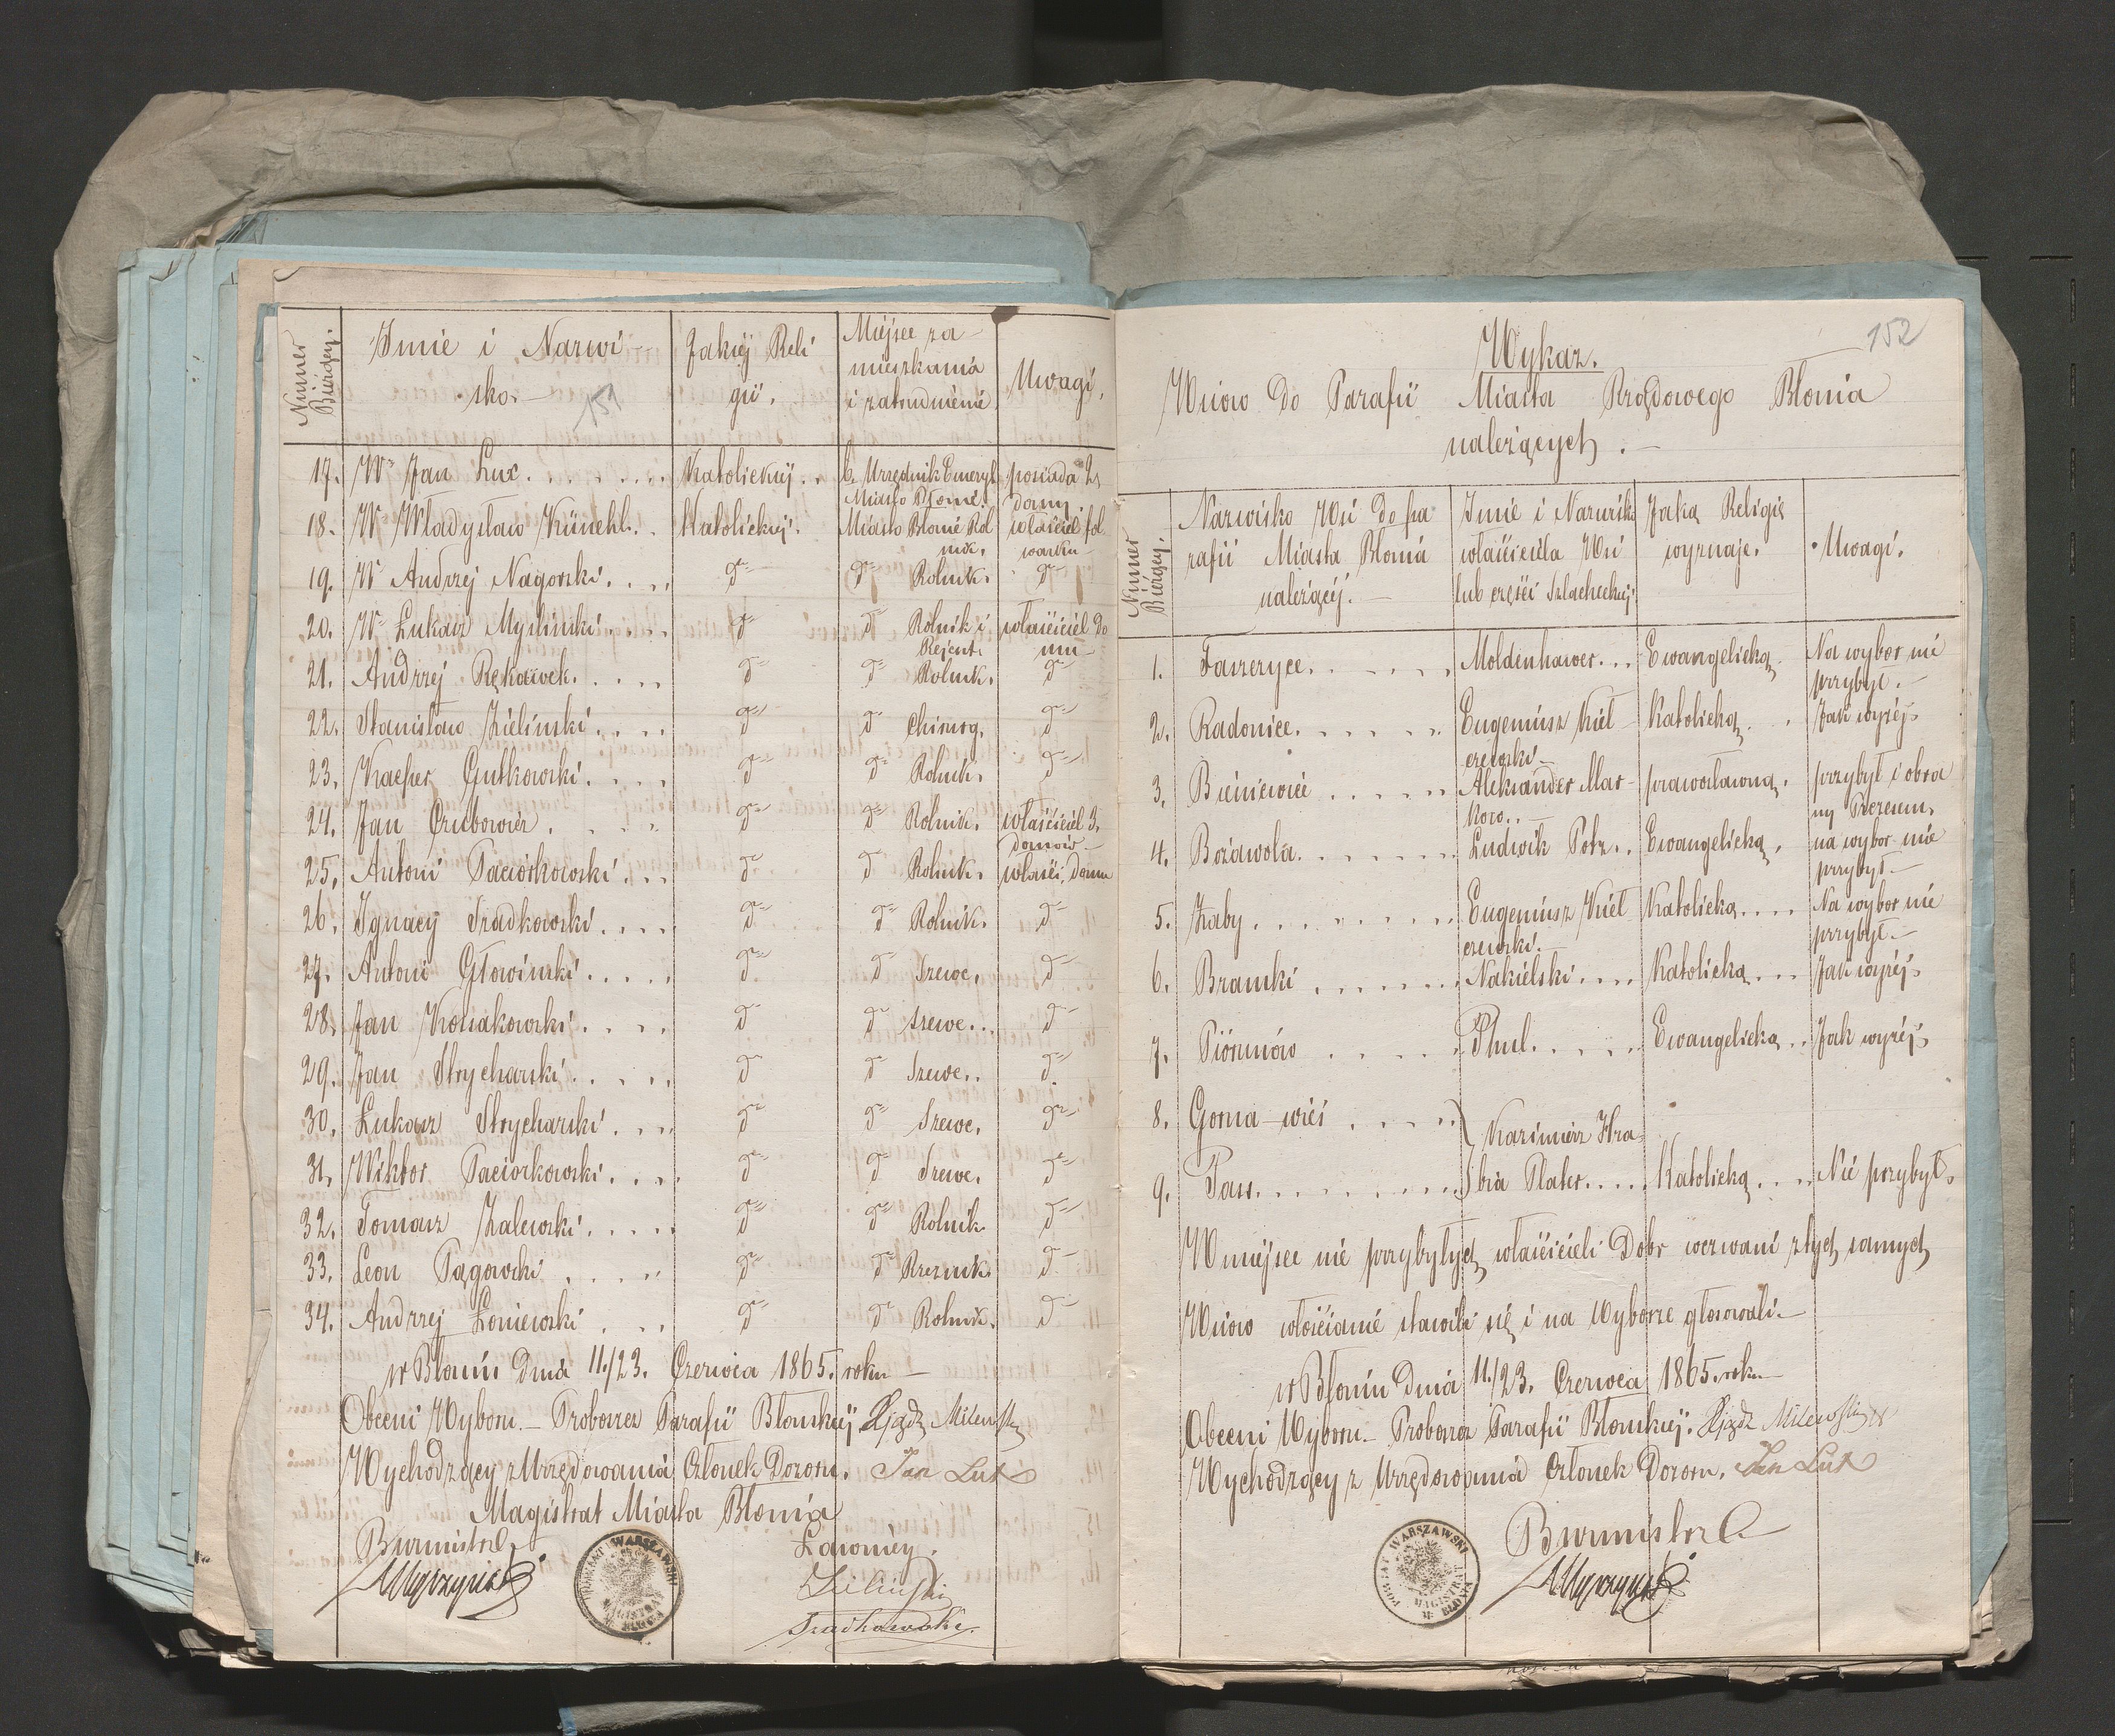 Numer Bieżący.
Imie i Nazwi
sko.
151
Jakiej Reli
gii.
Miejsce za
mieszkania
i zatrudnienie
Uwagi.
17. Wny Jan Lux. Katolickiej. b. Urzędnik Emeryt posiada 2
Miasto Błonie. domy.
18. W Władysław Künehl. Katolickiej. Miasto Błonie Rol właściciel fol
nik. warku
19. W Andrzej Nagorski. dto dto Rolnik. dto
20. W Łukasz Myśliński. dto dto Rolnik i właściciel Do
Rejent. mu
21. Andrzej Rękawek. dto dto Rolnik. dto
22. Stanisław Zieliński. dto dto Chirurg. dto
23. Kacper Gutkowski. dto dto Rolnik. dto
24. Jan Czubowicz. dto dto Rolnik. właściciel 3.
domów
25. Antoni Paciorkowski. dto dto Rolnik. właści. domu
26. Ignacy Sradkowski. dto dto Rolnik. dto
27. Antoni Głowiński. dto dto Szewc. dto
28. Jan Koniakowski. dto dto szewc. dto
29. Jan Strycharski. dto dto Szewc. dto
30. Łukasz Strycharski. dto dto Szewc. dto
31. Wiktor Paciorkowski. dto dto Szewc. dto
32. Tomasz Zalewski. dto dto Rolnik dto
33. Leon Pągowski dto dto Rzeznik. dto
34. Andrzej Łoniewski dto dto Rolnik. dto
w Błoniu Dnia 11./23. Czerwca 1865. roku
Obecni Wyboru. Proboszcz Parafii Błońskiej Xjądz Milewski
Wychodzący z Urzędowania Członek Dozoru. Jan Lux
Magistrat Miasta Błonia
Burmistrz
Ławnicy.
Zieliński
Sradkowski.
WARSZAWSKI
MAGISTRAT
M. BŁONIA
152
Wykaz.
Wsiow Do Parafii Miasta Rządowego Błonia
należących.
Numer Bieżący.
Nazwisko Wsi Do pa
rafii Miasta Błonia
należącej.
Imie i Nazwisko
właściciela Wsi
lub części Szlacheckiej
Jaką Religię
wyznaje.
Uwagi.
1. Faszczyce. Moldenhawer. Ewangelicką. Na wybor nie
przybył.
2. Radonice. Eugeniusz Kieł Katolicką. Jak wyżej
czewski
3. Bieniewice Aleksander Mar prawosławną. przybył i obra
kow. ny Prezesem.
4. Bożawola. Ludwik Potz. Ewangelicką. na wybor nie
przybył
5. Żaby. Eugeniusz Kieł Katolicką. Na wybor nie
czewski. przybył
6. Bramki Nakielski. Katolicką. Jak wyżej
7. Piorunów Thul. Ewangelicką Jak wyżej
8. Gorna-wieś
Kazimierz Hra
9. Pass. bia Plater. Katolicką. Nie przybył.
W miejsce nie przybyłych właścicieli Dobr wezwani z tych samych
Wsiow włościanie stawili się i na Wyborze głosowali.
w Błoniu Dnia 11./23. Czerwca 1865. roku
Obecni Wyboru Proboszcz Parafii Błońskiej. Xjądz Milewski
Wychodzący z Urzędowania Członek Dozoru. Jan Lux
POWIAT WARSZAWSKI
MAGISTRAT
M. BŁONIA
Burmistrz